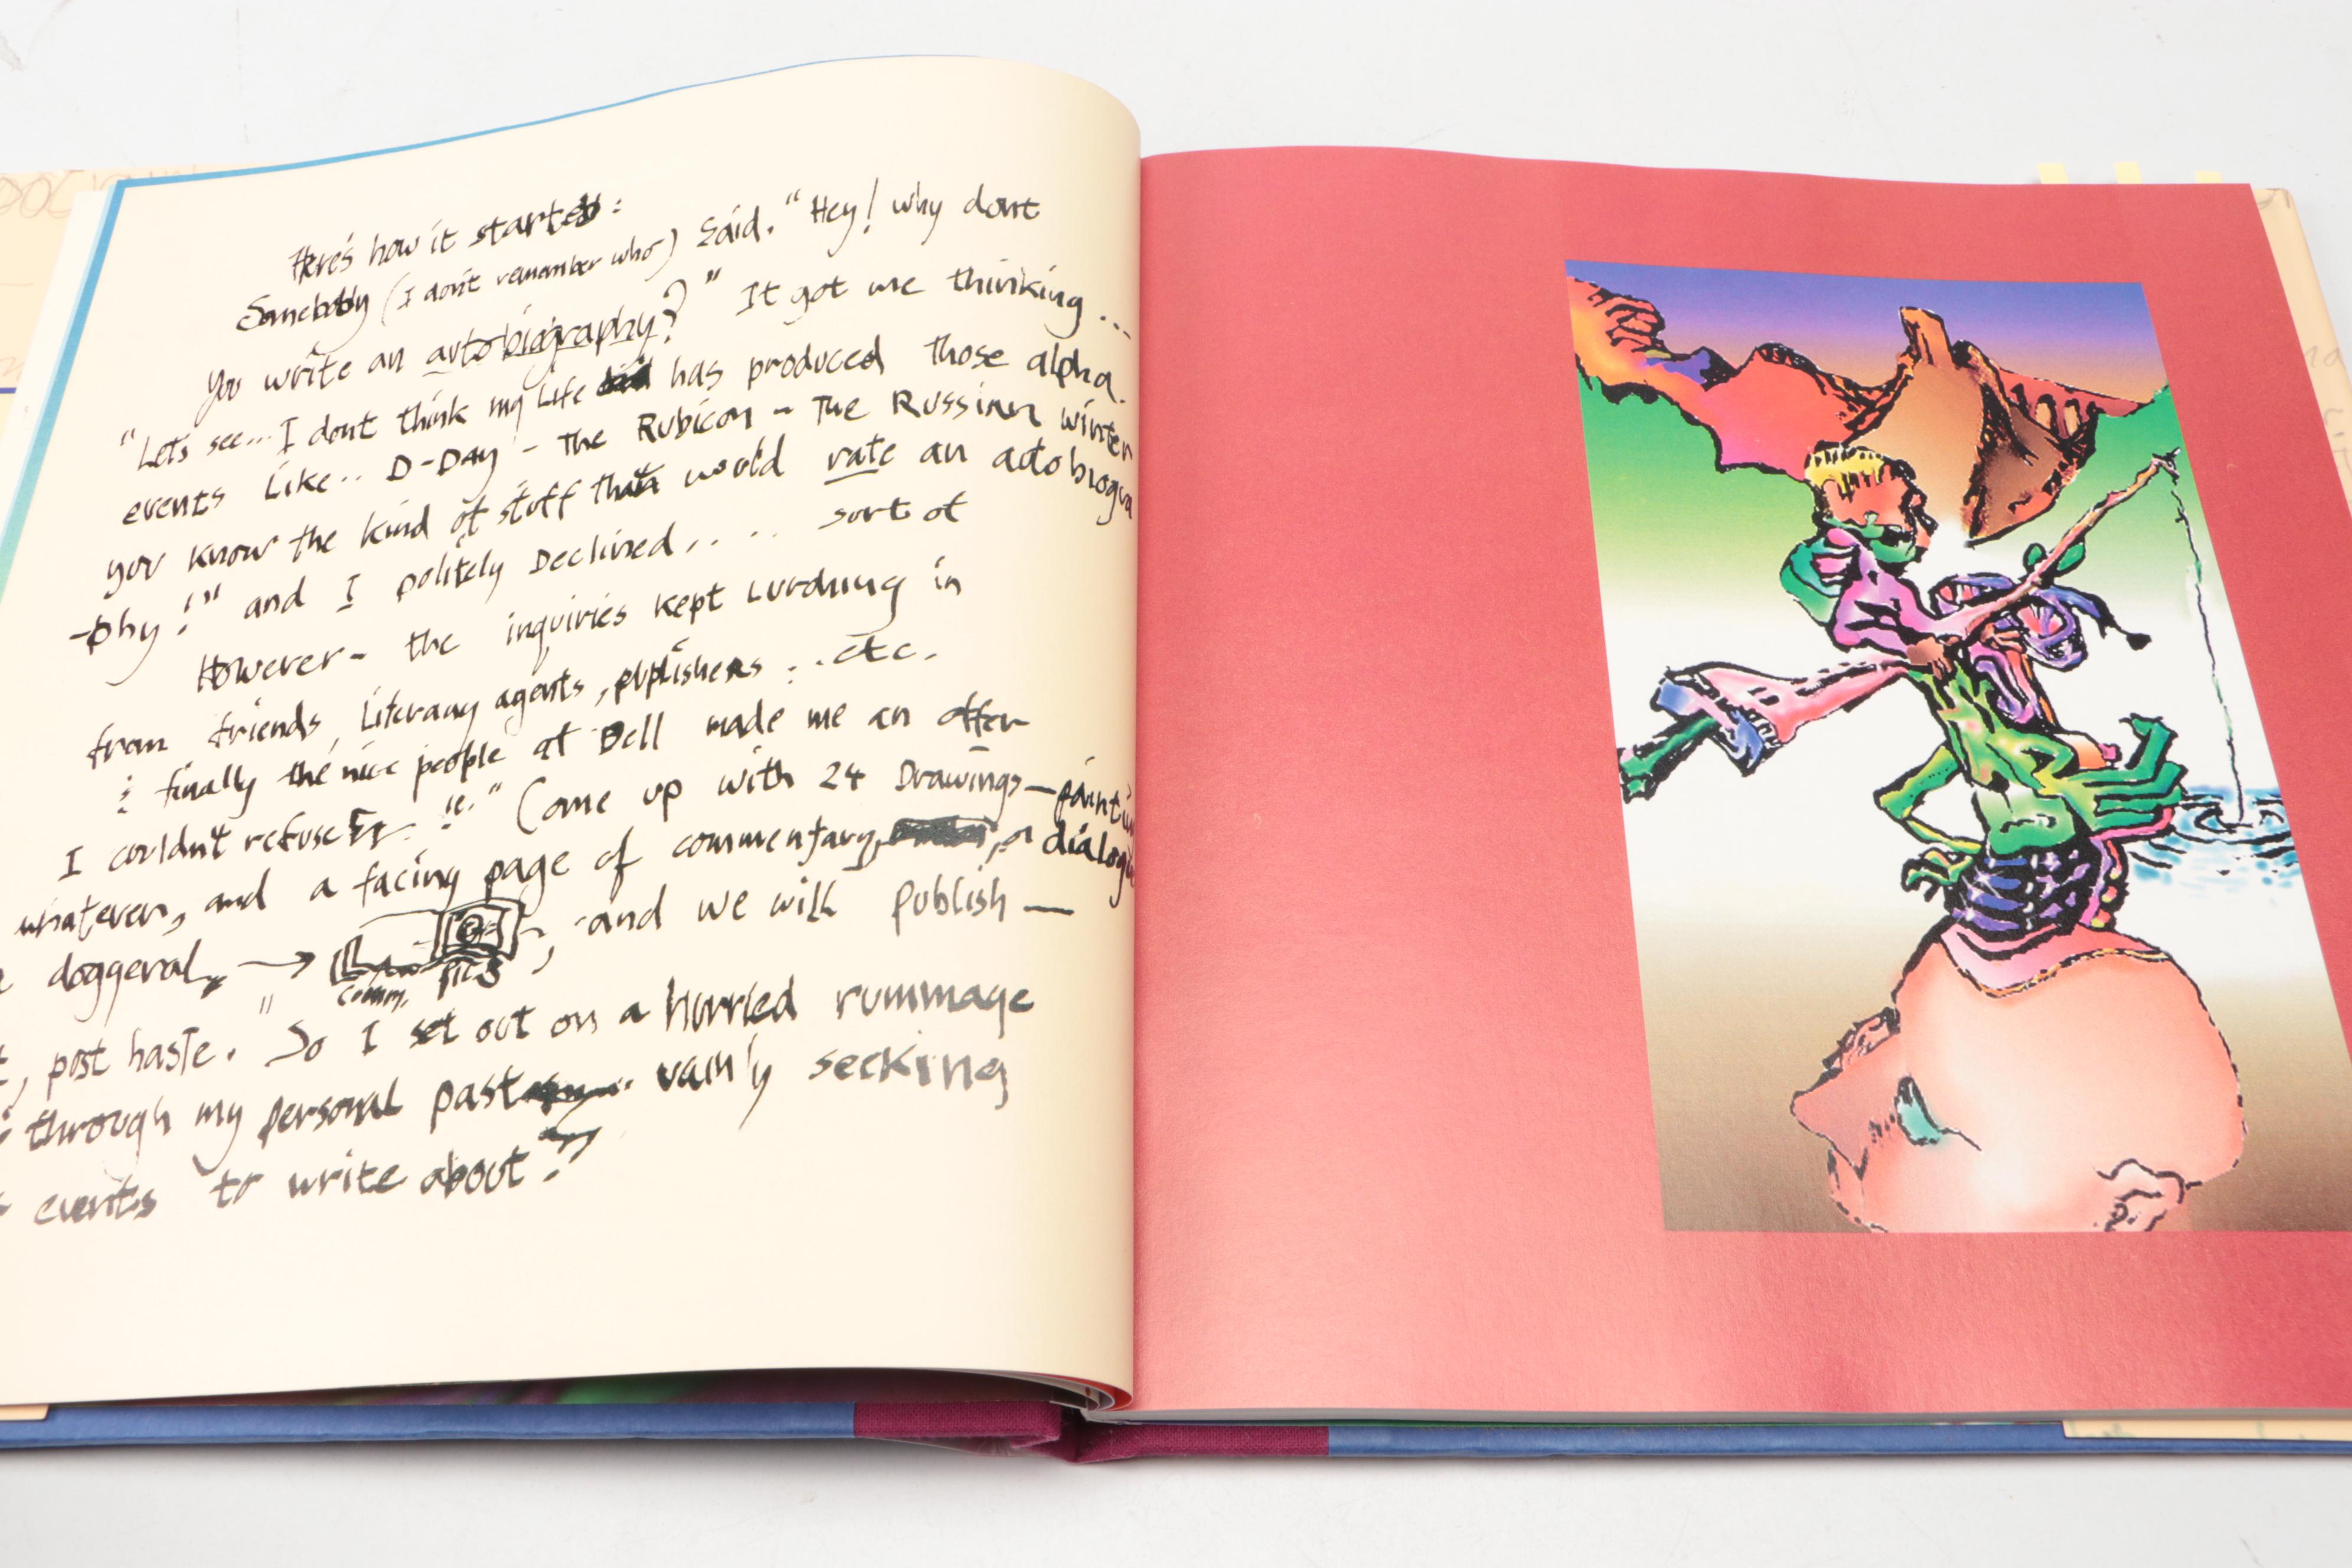 Here's how it started:
Somebody (I don't remember who) said. "Hey! why dont
you write an autobiography?" It got me thinking...
"Lets see... I dont think my life has produced those alpha
events like.. D-Day - The Rubicon - The Russian winter
you know the kind of stuff that would rate an autobiogra
-phy!" and I politely Declined.... sort of
However- the inquiries kept lurching in
from friends, literary agents, publishers... etc.
& finally the nice people at Dell made me an offer
I couldn't refuse ie." Come up with 24 Drawings-
whatever, and a facing page of commentary, or dialog
doggeral, → , and we will publish —
Comm. pics
, post haste." So I set out on a hurried rummage
through my personal past vainly seeking
events to write about!